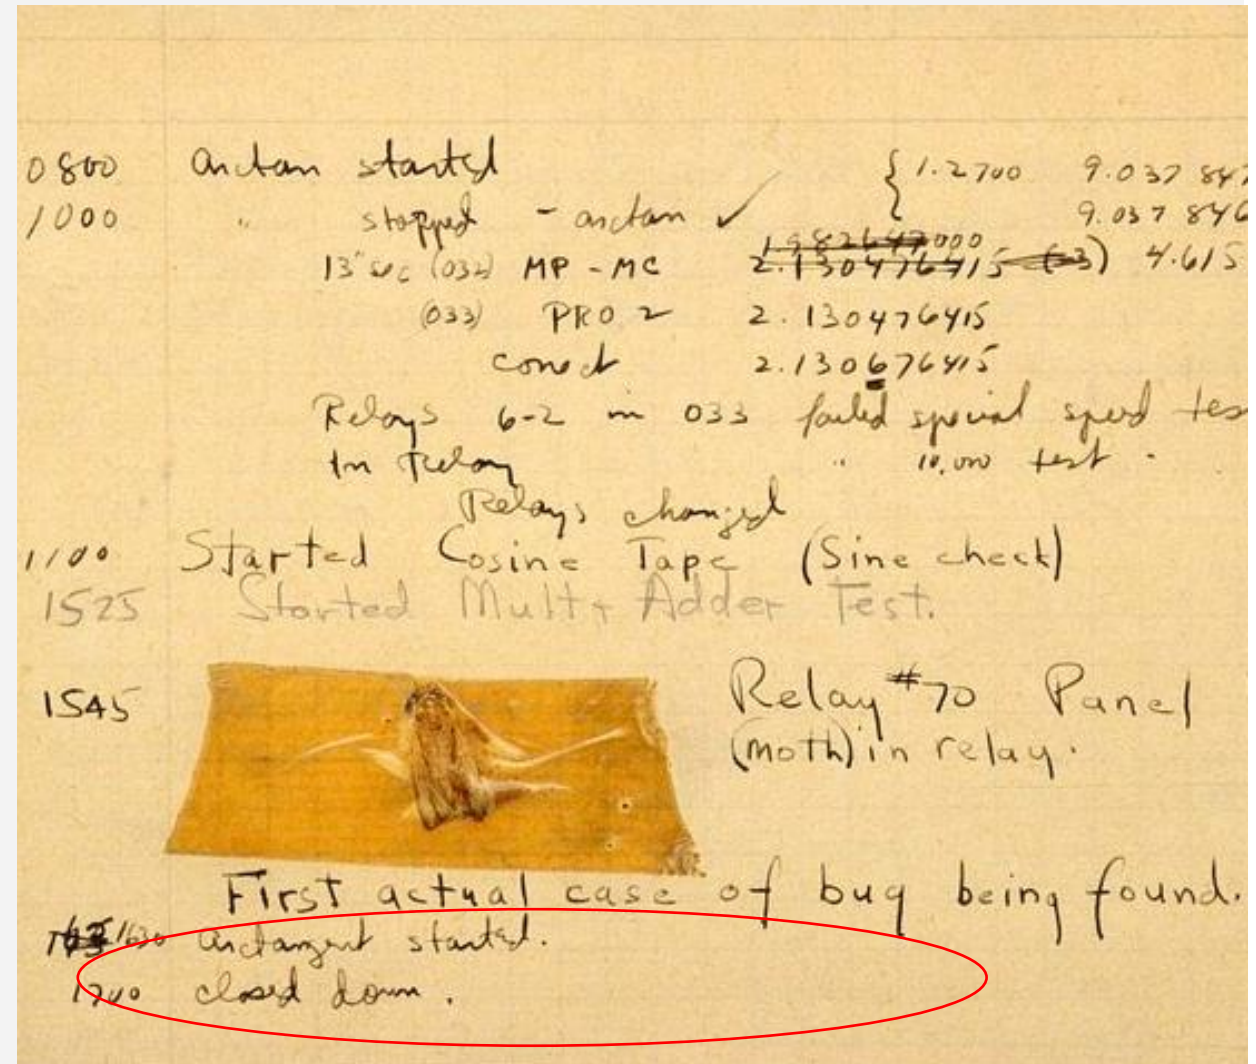 0800 arctan started { 1.2700 9.037 847
1000 " stopped - arctan ✓ 9.037 846
13" sec (032) MP - MC 1.982647000
2.130476415 (-3) 4.615
(033) PRO 2 2.130476415
correct 2.130676415
Relays 6-2 in 033 failed special speed tes
In Relay " 10,000 test .
Relays changed
1100 Started Cosine Tape (Sine check)
1525 Started Mult + Adder Test.
1545 Relay #70 Panel
(moth) in relay.
First actual case of bug being found.
1630 arctangent started.
1700 closed down .